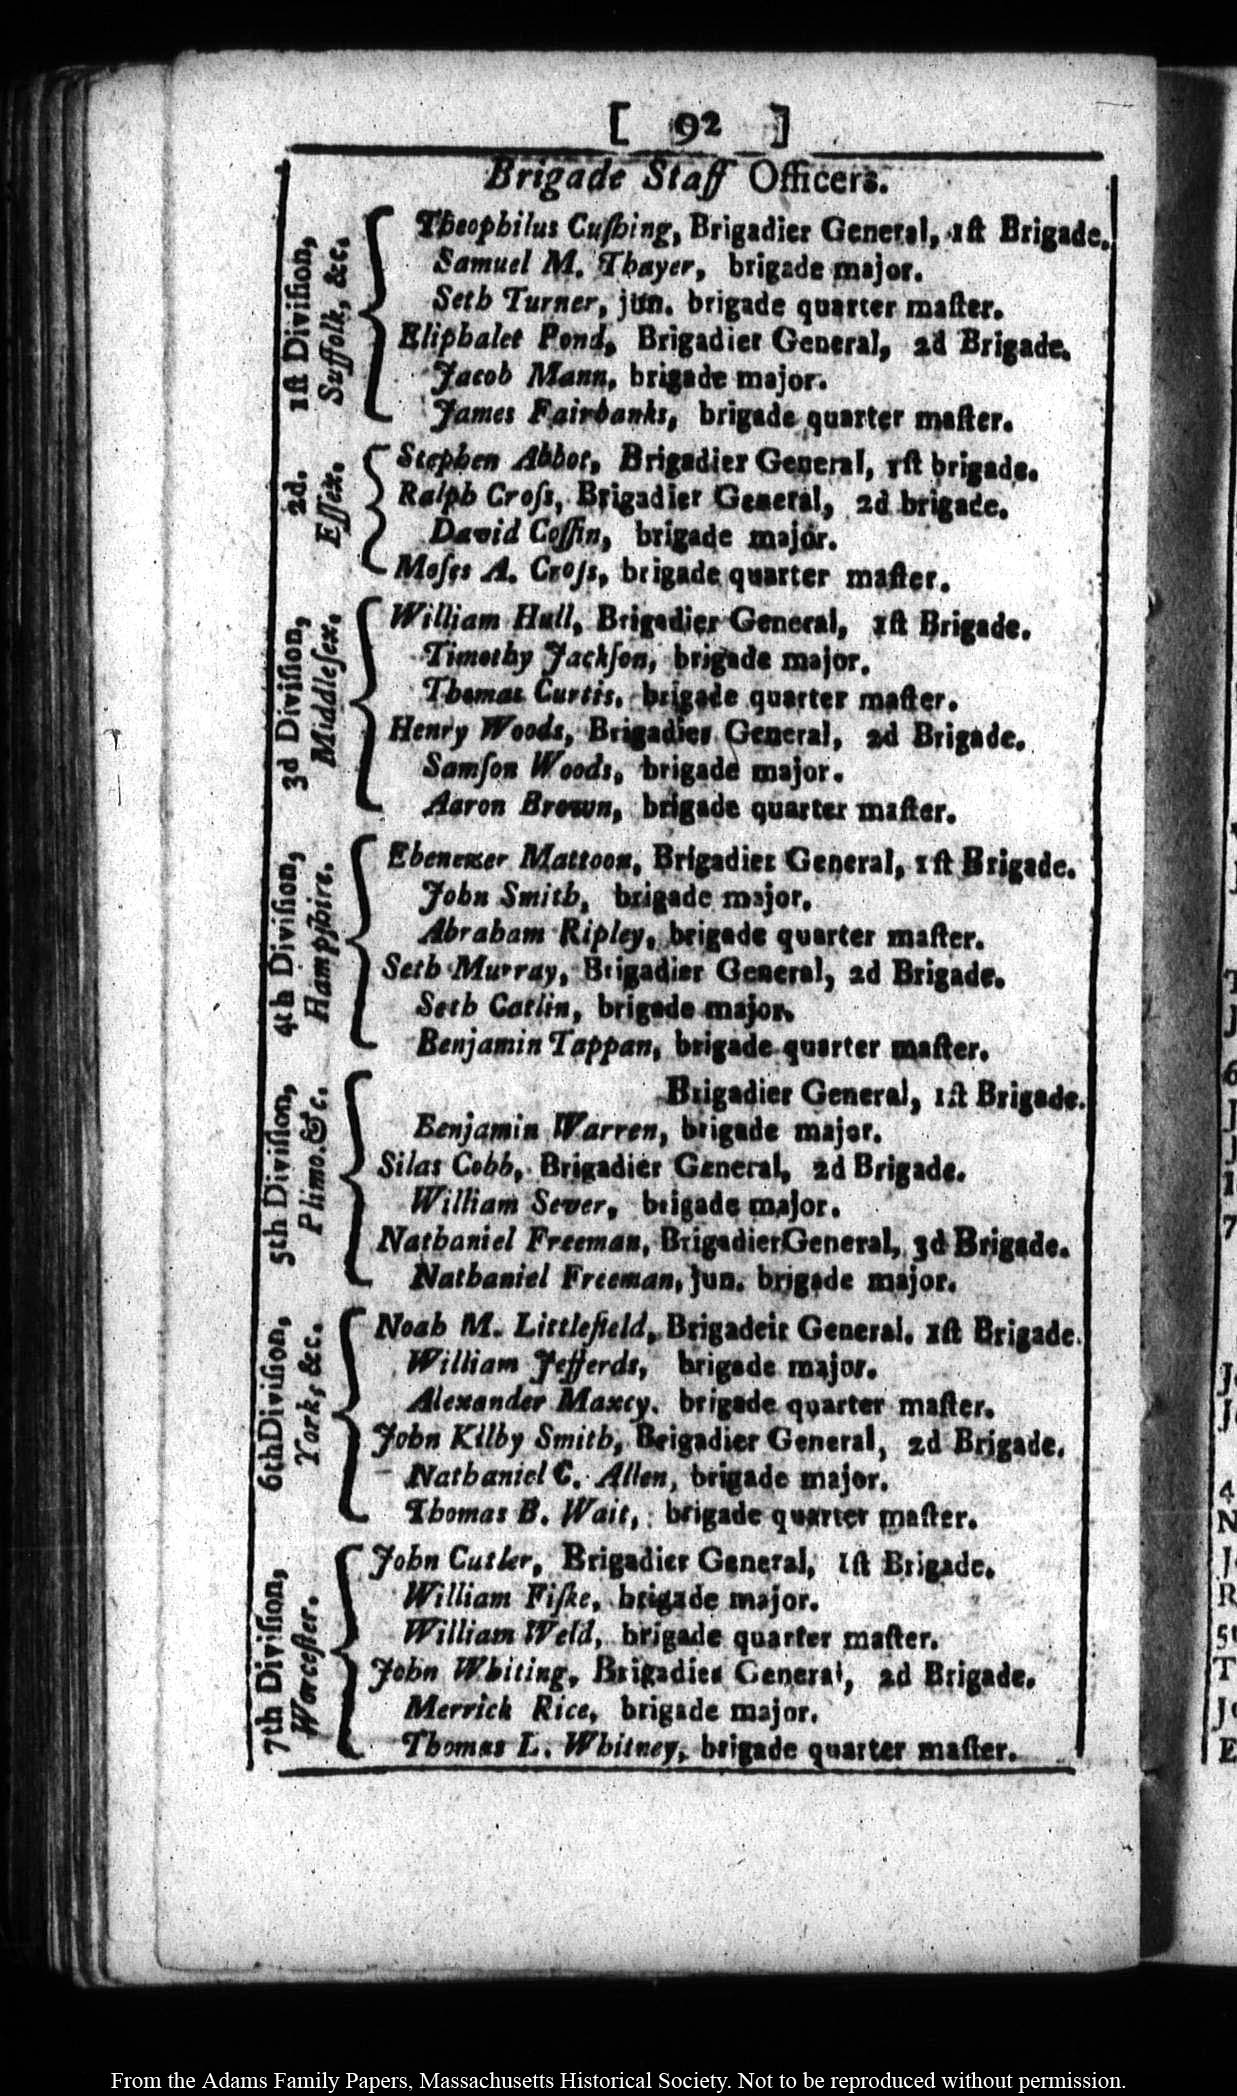 [ 92 ]
Brigade Staff Officers.
1ſt Diviſion,
Suffolk, &c.
Theophilus Cuſhing, Brigadier General, 1ſt Brigade.
Samuel M. Thayer, brigade major.
Seth Turner, jun. brigade quarter maſter.
Eliphalet Pond, Brigadier General, 2d Brigade.
Jacob Mann, brigade major.
James Fairbanks, brigade quarter maſter.
2d.
Eſſex.
Stephen Abbot, Brigadier General, 1ſt brigade.
Ralph Croſs, Brigadier General, 2d brigade.
David Coffin, brigade major.
Moſes A. Croſs, brigade quarter maſter.
3d Diviſion,
Middleſex.
William Hull, Brigadier General, 1ſt Brigade.
Timothy Jackſon, brigade major.
Thomas Curtis, brigade quarter maſter.
Henry Woods, Brigadier General, 2d Brigade.
Samſon Woods, brigade major.
Aaron Brown, brigade quarter maſter.
4th Diviſion,
Hampſhire.
Ebenezer Mattoon, Brigadier General, 1ſt Brigade.
John Smith, brigade major.
Abraham Ripley, brigade quarter maſter.
Seth Murray, Brigadier General, 2d Brigade.
Seth Catlin, brigade major.
Benjamin Tappan, brigade quarter maſter.
5th Diviſion,
Plimo. &c.
Brigadier General, 1ſt Brigade.
Benjamin Warren, brigade major.
Silas Cobb, Brigadier General, 2d Brigade.
William Sever, brigade major.
Nathaniel Freeman, Brigadier General, 3d Brigade.
Nathaniel Freeman, jun. brigade major.
6th Diviſion,
York, &c.
Noah M. Littlefield, Brigadeir General. 1ſt Brigade.
William Jefferds, brigade major.
Alexander Maxcy, brigade quarter maſter.
John Kilby Smith, Brigadier General, 2d Brigade.
Nathaniel C. Allen, brigade major.
Thomas B. Wait, brigade quarter maſter.
7th Diviſion,
Worceſter.
John Cutler, Brigadier General, 1ſt Brigade.
William Fiſke, brigade major.
William Weld, brigade quarter maſter.
John Whiting, Brigadier General, 2d Brigade.
Merrick Rice, brigade major.
Thomas L. Whitney, brigade quarter maſter.
From the Adams Family Papers, Massachusetts Historical Society. Not to be reproduced without permission.